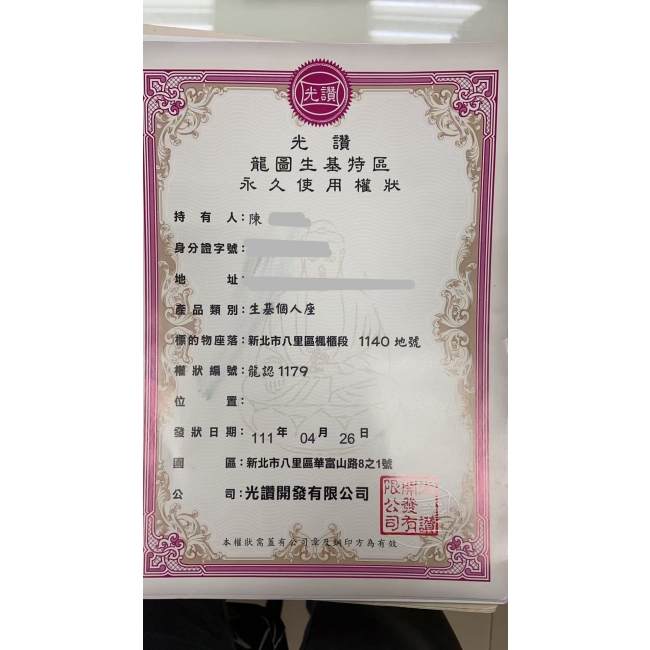 光讚
光讚
龍圖生基特區
永久使用權狀
持有人：陳
身分證字號：
地址：
產品類別：生基個人座
標的物座落：新北市八里區楓櫃段 1140 地號
權狀編號：龍認1179
位置：
發狀日期：111年 04月 26日
園區：新北市八里區華富山路8之1號
公司：光讚開發有限公司
光讚開發有限公司
本權狀需蓋有公司章及鋼印方為有效